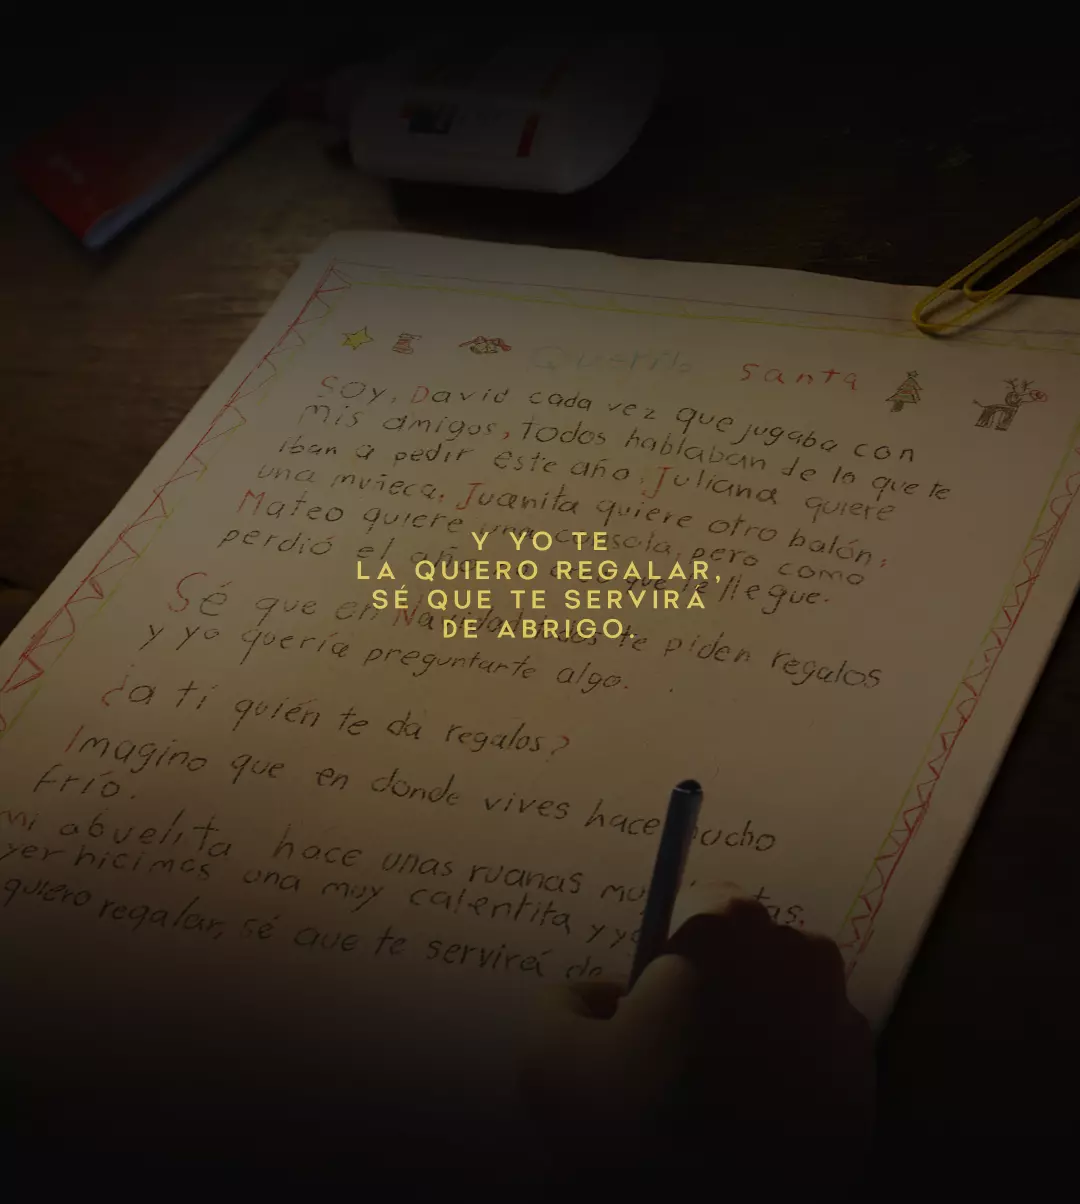 Querido santa
SOY, David cada vez que jugaba con
mis amigos, todos hablaban de lo que te
iban a pedir este año. Juliana quiere
una muñeca, Juanita quiere otro balón,
Mateo quiere una consola, pero como
perdió el año no creo que le llegue.
Sé que en Navidad todos te piden regalos
y yo quería preguntarte algo.
¿a ti quién te da regalos?
Imagino que en donde vives hace mucho
Frío.
mi abuelita hace unas ruanas
yer hicimos una muy calentita y yo
quiero regalar, sé que te servirá de
Y YO TE
LA QUIERO REGALAR,
SÉ QUE TE SERVIRÁ
DE ABRIGO.